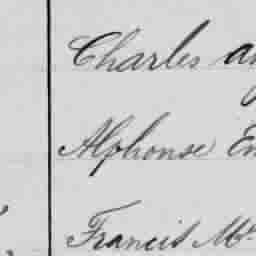 Charles
Alphonse
Francis Mc